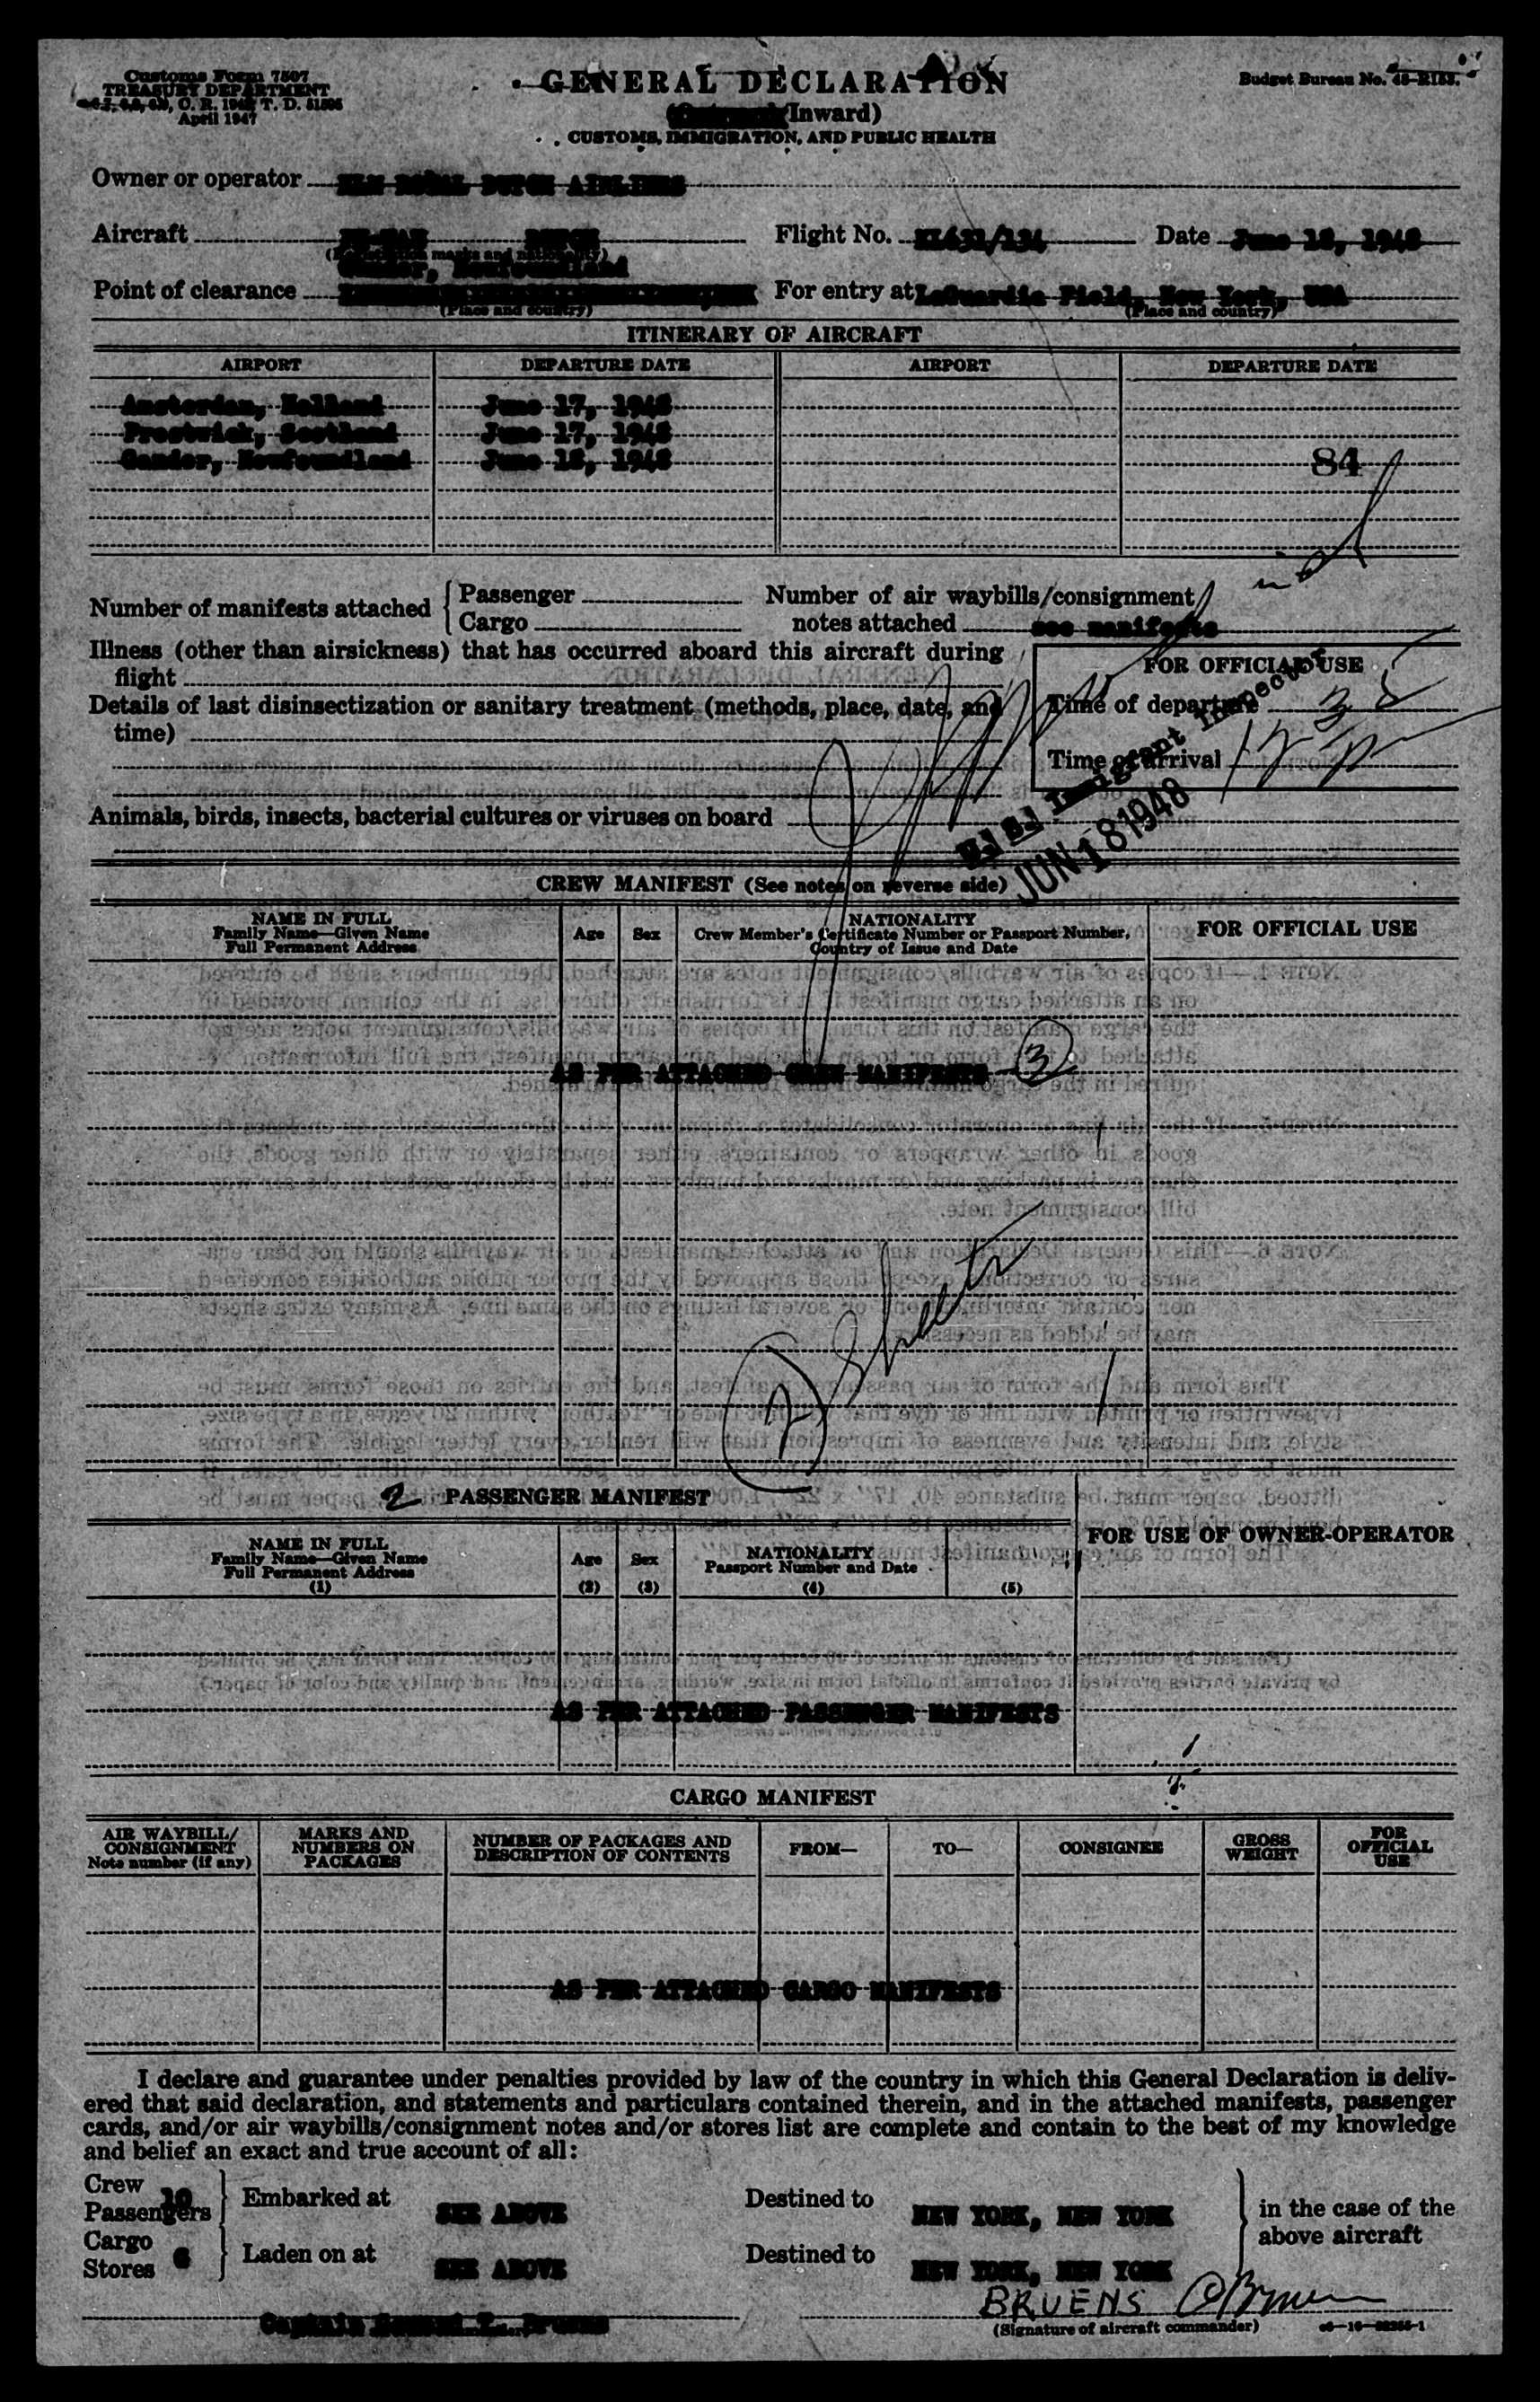 Customs Form 7507
TREASURY DEPARTMENT
C. R. T. D.
April 1947
GENERAL DECLARATION
Inward)
CUSTOMS, IMMIGRATION, AND PUBLIC HEALTH
Budget Bureau No.
Owner or operator KLM ROYAL DUTCH AIRLINES
Aircraft DUTCH
Flight No. KL631/134 Date June 18, 1948
Gander, Newfoundland
Point of clearance
(Place and country)
For entry at LaGuardia Field, New York, USA
(Place and country)
ITINERARY OF AIRCRAFT
AIRPORT DEPARTURE DATE AIRPORT DEPARTURE DATE
Amsterdam, Holland June 17, 1948
Prestwick, Scotland June 17, 1948
Gander, Newfoundland June 18, 1948
84
Number of manifests attached { Passenger
Cargo
Number of air waybills/consignment
notes attached see manifests
Illness (other than airsickness) that has occurred aboard this aircraft during
flight
Details of last disinsectization or sanitary treatment (methods, place, date, and
time)
FOR OFFICIAL USE
Time of departure
Time of arrival
U. S. Immigrant Inspector
JUN 18 1948
Animals, birds, insects, bacterial cultures or viruses on board
CREW MANIFEST (See notes on reverse side)
NAME IN FULL
Family Name—Given Name
Full Permanent Address
Age Sex
NATIONALITY
Crew Member's Certificate Number or Passport Number,
Country of Issue and Date
FOR OFFICIAL USE
AS PER ATTACHED CREW MANIFESTS 3
2 Sheets
2 PASSENGER MANIFEST
NAME IN FULL
Family Name—Given Name
Full Permanent Address
(1)
Age
(2)
Sex
(3)
NATIONALITY
Passport Number and Date
(4) (5)
FOR USE OF OWNER-OPERATOR
AS PER ATTACHED PASSENGER MANIFESTS
CARGO MANIFEST
AIR WAYBILL/
CONSIGNMENT
Note number (if any)
MARKS AND
NUMBERS ON
PACKAGES
NUMBER OF PACKAGES AND
DESCRIPTION OF CONTENTS
FROM—
TO—
CONSIGNEE
GROSS
WEIGHT
FOR
OFFICIAL
USE
AS PER ATTACHED CARGO MANIFESTS
I declare and guarantee under penalties provided by law of the country in which this General Declaration is deliv-
ered that said declaration, and statements and particulars contained therein, and in the attached manifests, passenger
cards, and/or air waybills/consignment notes and/or stores list are complete and contain to the best of my knowledge
and belief an exact and true account of all:
Crew 10
Passengers
Embarked at SEE ABOVE
Destined to NEW YORK, NEW YORK
in the case of the
above aircraft
Cargo
Stores
Laden on at SEE ABOVE
Destined to NEW YORK, NEW YORK
Captain Bruens
BRUENS
(Signature of aircraft commander)